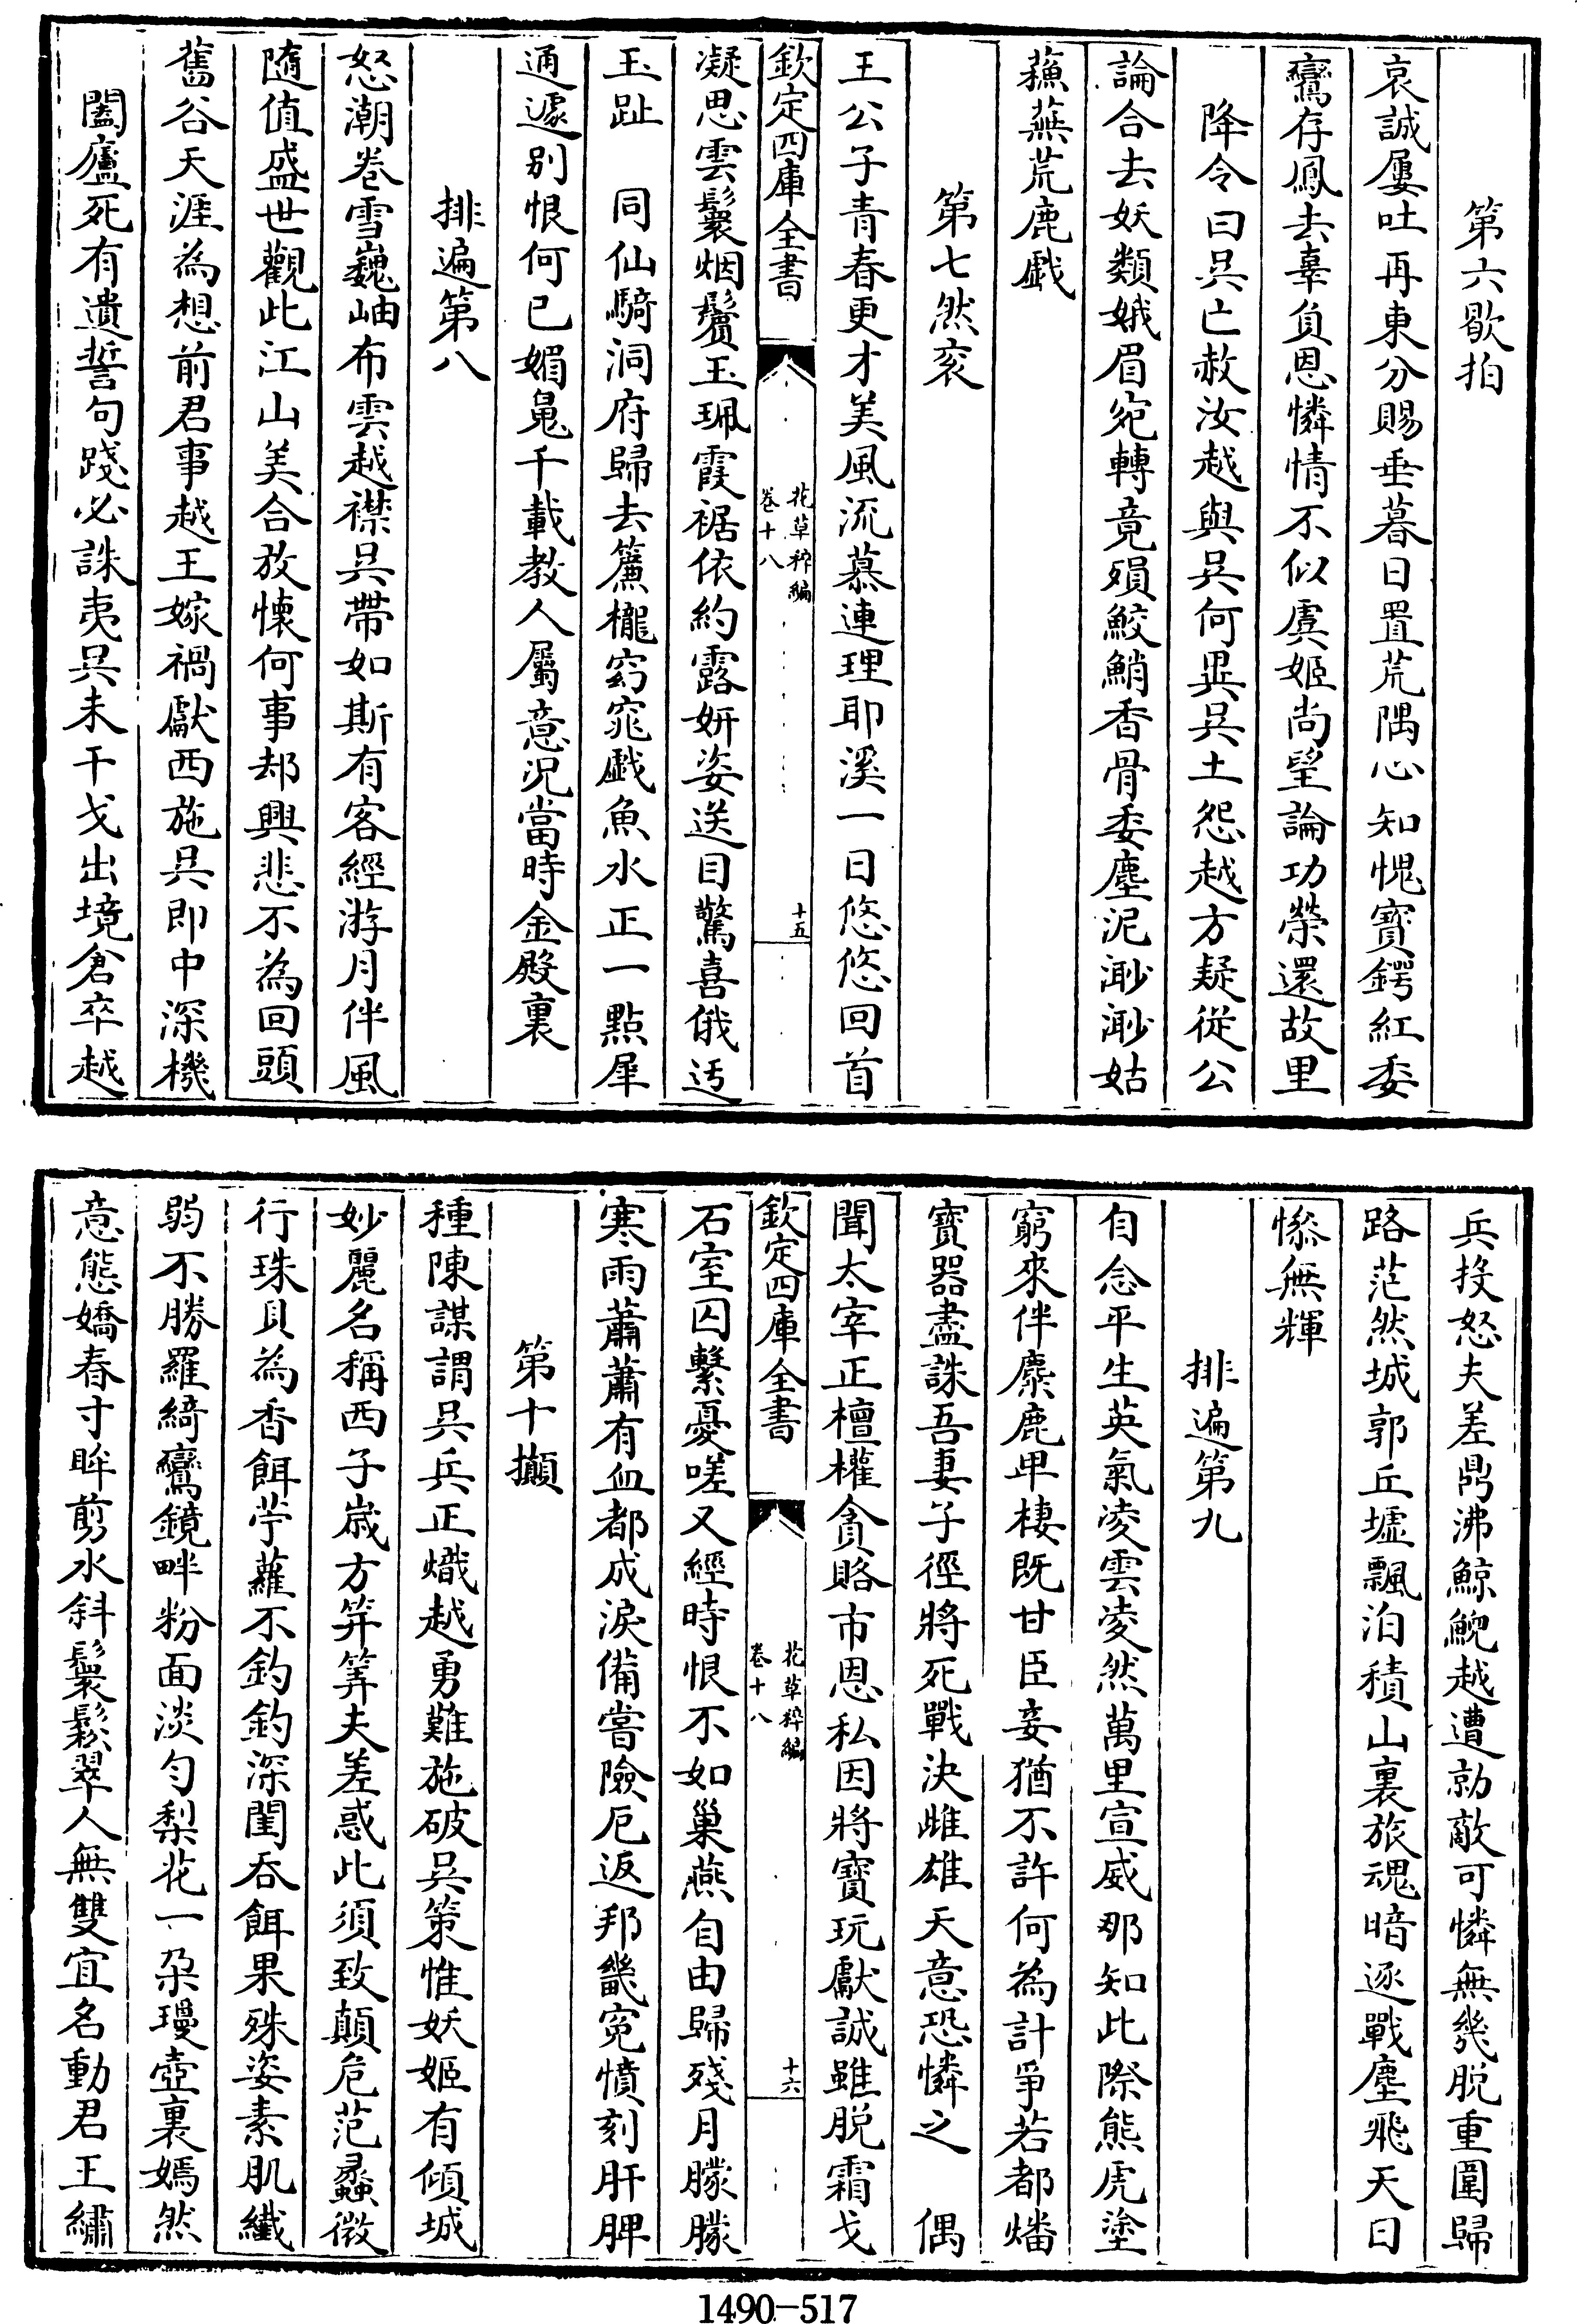 第六歇拍
哀誠屢吐再東分賜垂暮日置荒隅心知愧寶鍔紅委
鸞存鳳去辜負恩憐情不似虞姬尚望論功榮還故里
降令曰吳亡赦汝越與吳何異吳土怨越方疑從公
論合去妖類娥眉宛轉竟殞鮫鮹香骨委塵泥渺渺姑
蘓蕪荒鹿戱
第七煞衮
王公子青春更才美風流慕連理耶溪一日悠悠回首
欽定四庫全書
花草稡編
卷十八
十五
凝思雲鬟烟鬢玉珮霞裾依約露妍姿送目驚喜俄迃
玉趾　同仙騎洞府歸去簾櫳窈窕戱魚水正一點犀
通遽别恨何已媚䰟千載教人屬意況當時金殿裏
排遍第八
怒潮卷雪巍岫布雲越襟吳帶如斯有客經游月伴風
隨值盛世觀此江山美合放懷何事却興悲不為回頭
舊谷天涯為想前君事越王嫁禍獻西施吳即中深機
闔廬死有遺誓句踐必誅夷吳未干戈出境倉卒越
兵投怒夫差鼎沸鯨鯢越遭勍敵可憐無幾脱重圍歸
路茫然城郭丘墟飄泊積山裏旅魂暗逐戰塵飛天日
慘無輝
排遍第九
自念平生英氣凌雲凌然萬里宣威那知此際熊虎塗
窮來伴麋鹿甲棲既甘臣妾猶不許何為計爭若都燔
寶器盡誅吾妻子徑將死戰決雌雄天意恐憐之　偶
聞太宰正檀權貪賂市恩私因將寶玩獻誠雖脱霜戈
欽定四庫全書
花草稡編
卷十八
十六
石室囚繫憂嗟又經時恨不如巢燕自由歸殘月朦朦
寒雨蕭蕭有血都成淚備嘗險厄返邦畿寃憤刻肝脾
第十攧
種陳謀謂吳兵正熾越勇難施破吳策惟妖姬有傾城
妙麗名稱西子嵗方笄筭夫差惑此須致顛危范蠡微
行珠貝為香餌苧蘿不釣釣深閨吞餌果殊姿素肌纎
弱不勝羅綺鸞鏡畔粉面淡勻梨花一朶瓊壺裏嫣然
意態嬌春寸眸剪水斜鬟鬆翠人無雙宜名動君王繡
1490-517